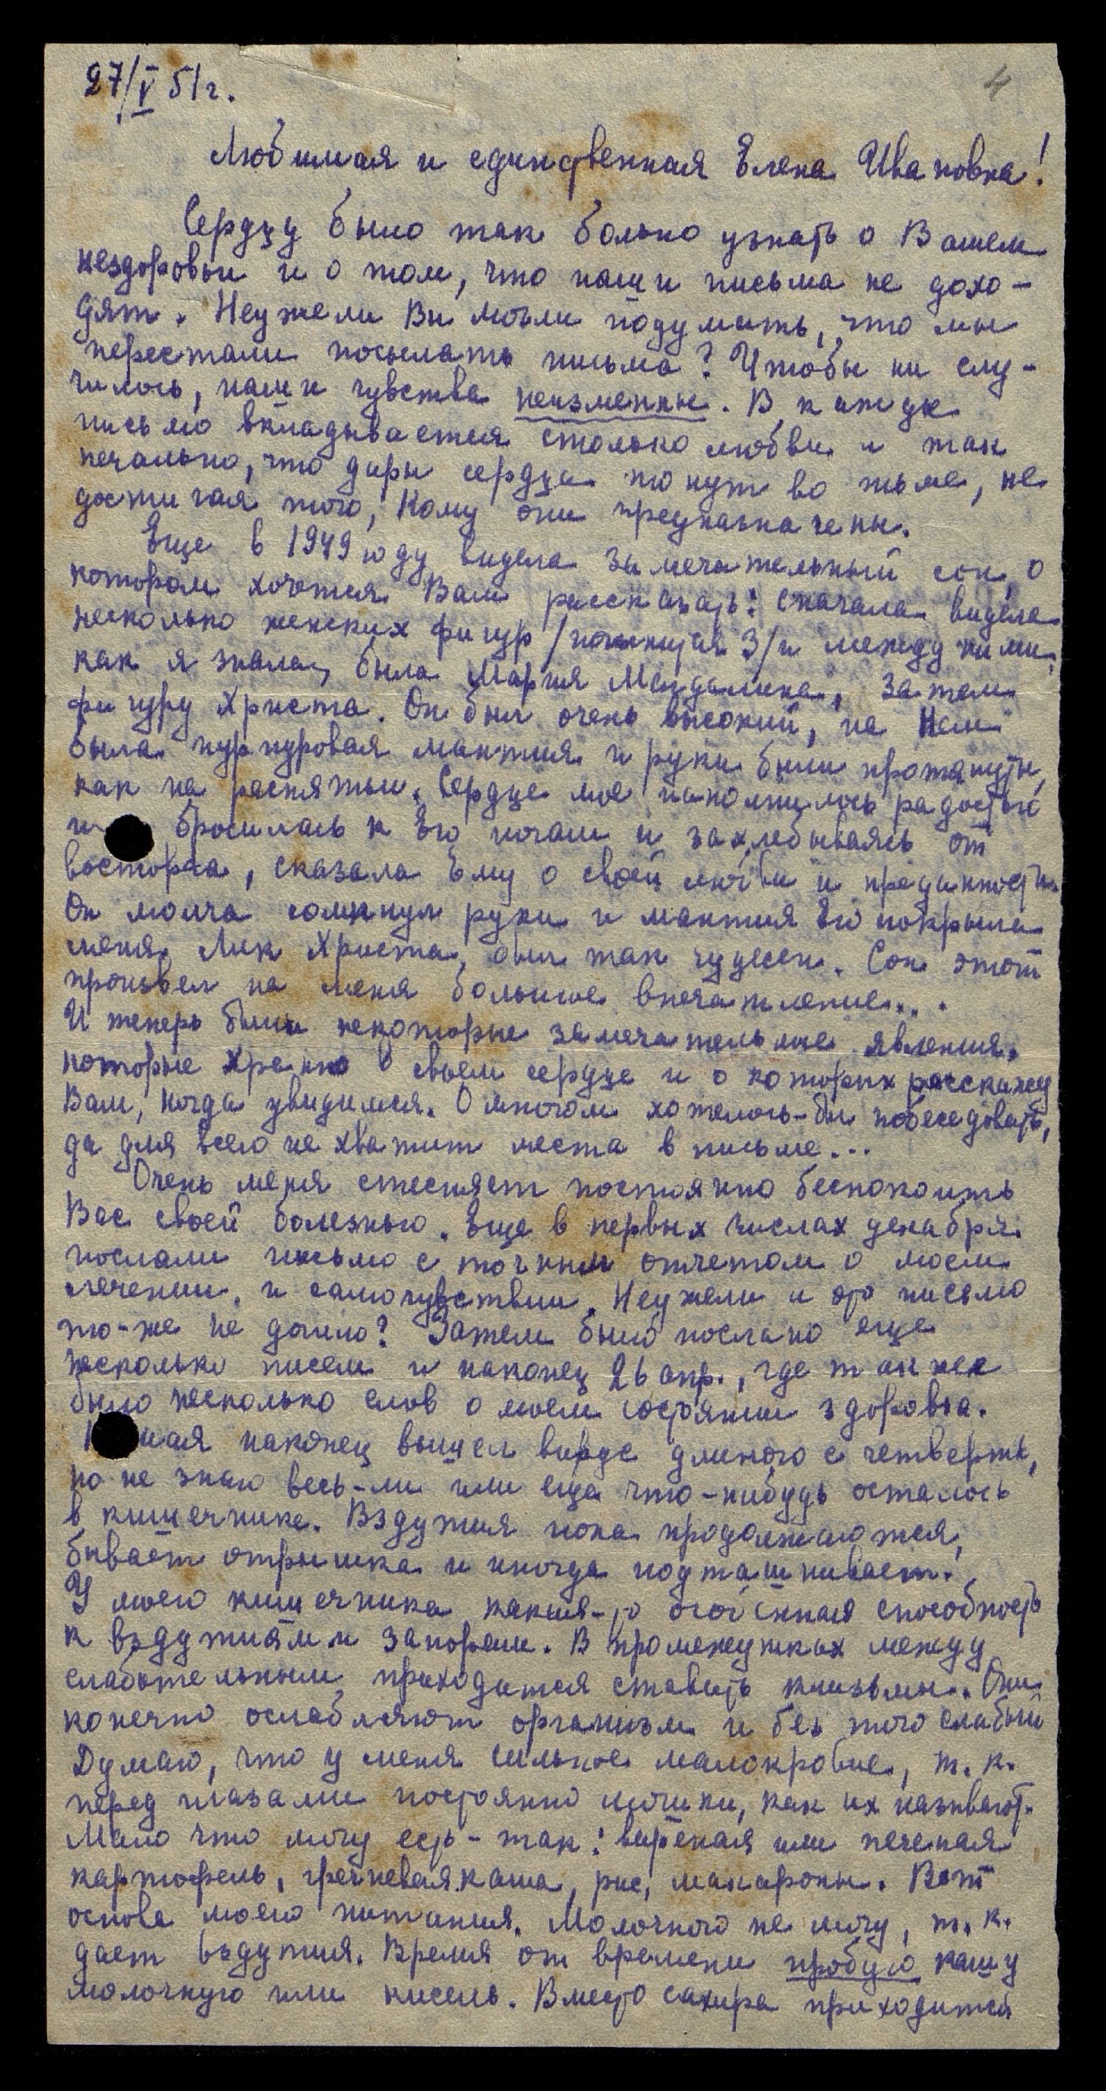 27/V 51 г.
4
Любимая и единственная Елена Ивановна!
Сердцу было так больно узнать о Вашем
нездоровьи и о том, что наши письма не дохо-
дят. Неужели Вы могли подумать, что мы
перестали посылать письма? Чтобы ни слу-
чилось, наши чувства неизменны. В каждое
письмо вкладывается столько любви и так
печально, что дары сердца тонут во тьме, не
достигая того, Кому они предназначены.
Еще в 1949 году видела замечательный сон, о
котором хочется Вам рассказать: сначала видела
несколько женских фигур /помнится 3/ и между ними,
как я знала, была Мария Магдалина, затем
фигуру Христа. Он был очень высокий, на Нем
была пурпуровая мантия и руки были протянуты,
как на распятьи. Сердце мое наполнилось радостью
и бросилась к Его ногам и захлебываясь от
восторга, сказала Ему о своей любви и преданности.
Он молча сомкнул руки и мантия Его покрыла
меня. Лик Христа, был так чудесен. Сон этот
произвел на меня большое впечатление...
И теперь были некоторые замечательные явления,
которые храню в своем сердце и о которых расскажу
Вам, когда увидимся. О многом хотелось-бы побеседовать,
да для всего не хватит места в письме...
Очень меня стесняет постоянно беспокоить
Вас своей болезнью. Еще в первых числах декабря
послали письмо с точным отчетом о моем
лечении, и самочувствии. Неужели и это письмо
то-же не дошло? Затем было послано еще
несколько писем и наконец 26 апр., где также
было несколько слов о моем состоянии здоровья.
мая наконец вышел вроде длиного с четверть,
но не знаю весь-ли или еще что-нибудь осталось
в кишечнике. Вздутия пока продолжаются,
бывает отрыжка и иногда подташнивает.
У моего кишечника какая-то особенная способность
к вздутиям и запорам. В промежутках между
слабительным, приходится ставить клизмы. Они
конечно ослабляют организм и без того слабый
Думаю, что у меня сильное малокровие, т.к.
перед глазами постоянно мошки, как их называют.
Мало что могу есть - так: вареная или печеная
картофель, гречневая каша, рис, макароны. Вот
основа моего питания. Молочного не могу, т.к.
дает вздутия. Время от времени пробую кашу
молочную или кисель. Вместо сахара приходится